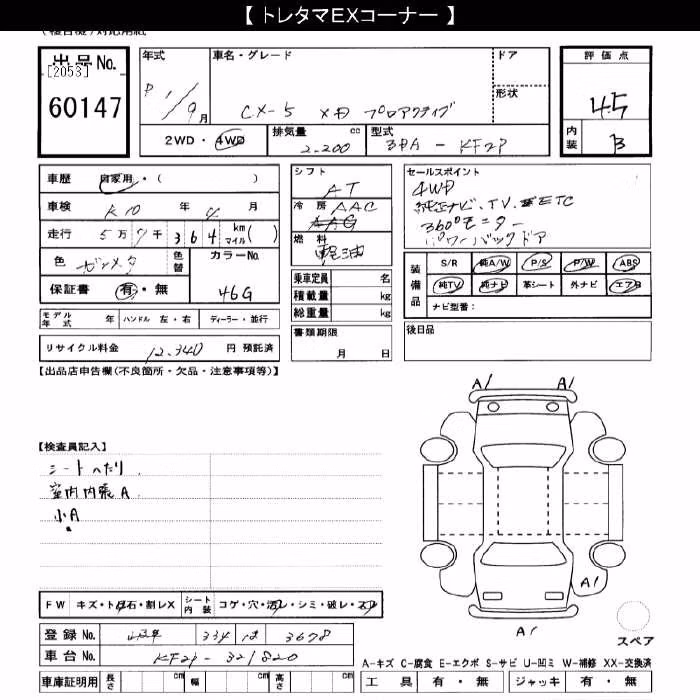 【 トレタマEXコーナー 】
出品No.
[2053]
60147
年式
R 1/9月
車名・グレード
CX-5 XD プロアクティブ
ドア
形状
評価点
4.5
内装
B
2WD・4WD
排気量 cc
2200
型式
3DA - KF2P
車歴 自家用・( )
車検 R10 年 9 月
走行 5万 7千 364 km マイル( )
色 ガンメタ
色替
カラーNo.
46G
保証書 有・無
シフト
AT
冷房 AAC
燃料 軽油
乗車定員 名
積載量 kg
総重量 kg
セールスポイント
4WD
純正ナビ、TV、ETC
360°モニター
パワーバックドア
装備品
S/R 純A/W P/S P/W ABS
純TV 純ナビ 革シート 外ナビ エアB
ナビ型番:
モデル年式 年 ハンドル 左・右 ディーラー・並行
リサイクル料金 12,340 円 預託済
書類期限
月 日
後日品
【出品店申告欄(不良箇所・欠品・注意事項等)】
A1 A1
【検査員記入】
シートへたり
室内内張A
小A
A1
A1
スペア
FW キズ・ト飛石・割レX
シート内装 コゲ・穴・汚レ・シミ・破レ・スレ
登録No. 334 は 3678
車台No. KF2P-321820
車庫証明用 長さ cm 幅 cm 高さ cm
A-キズ C-腐食 E-エクボ S-サビ U-凹ミ W-補修 XX-交換済
工具 有・無 ジャッキ 有・無